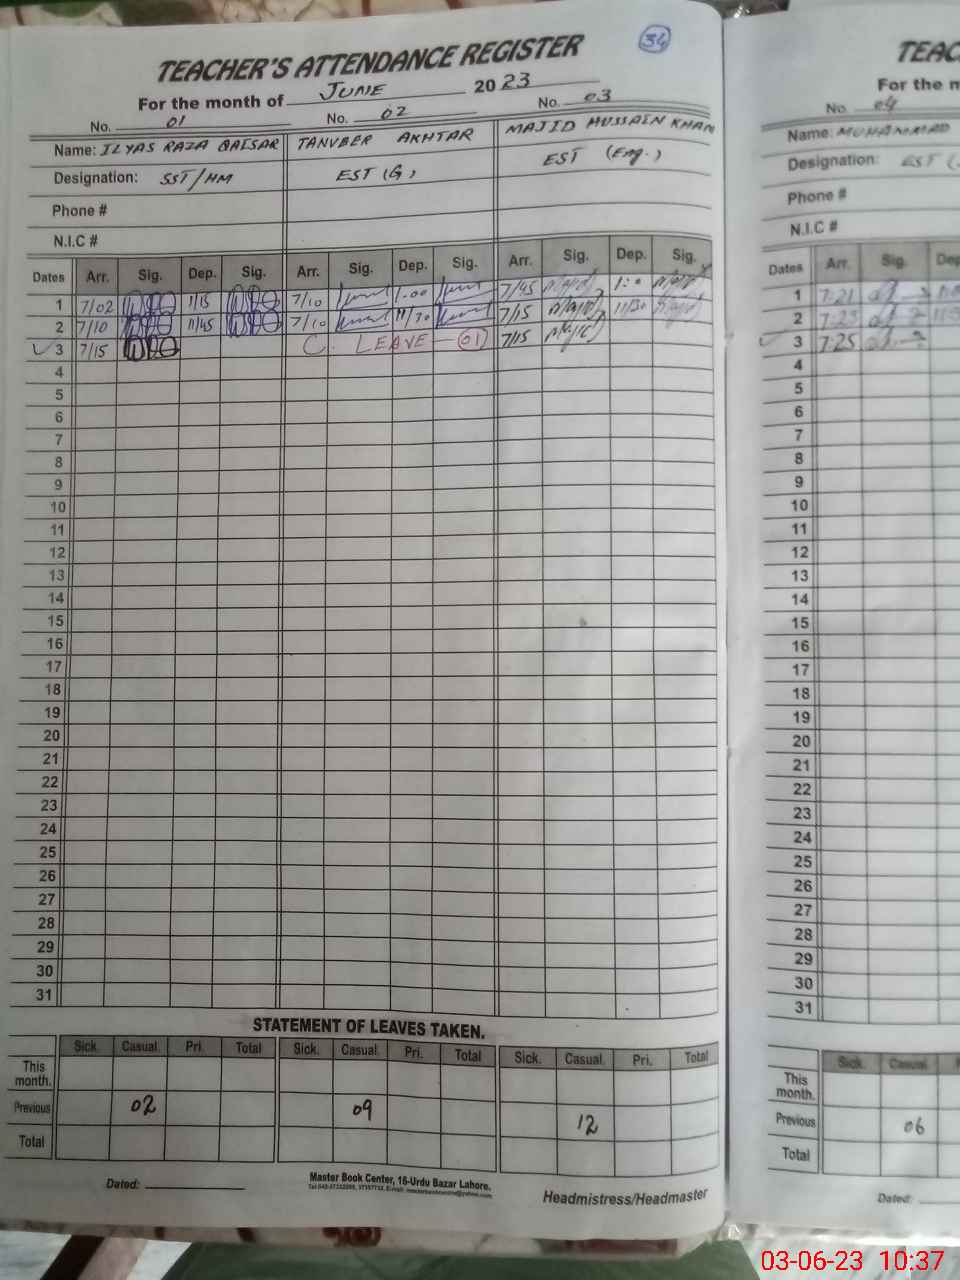 34
TEACHER'S ATTENDANCE REGISTER
For the month of JUNE 2023
No. 01 No. 02 No. 03
Name: ILYAS RAZA QAISAR TANVEER AKHTAR MAJID HUSSAIN KHAN
Designation: SST/HM EST (G) EST (Eng.)
Phone #
N.I.C #
Dates Arr. Sig. Dep. Sig. Arr. Sig. Dep. Sig. Arr. Sig. Dep. Sig.
1 7/02 1/15 7/10 1:00 7/45 1:0
2 7/10 11/45 7/10 11/30 7/15 11/30
3 7/15 C. LEAVE - 01 7/15
4
5
6
7
8
9
10
11
12
13
14
15
16
17
18
19
20
21
22
23
24
25
26
27
28
29
30
31
STATEMENT OF LEAVES TAKEN.
Sick. Casual. Pri. Total Sick. Casual. Pri. Total Sick. Casual. Pri. Total
This
month.
Previous 02 09 12
Total
Dated:
Master Book Center, 16-Urdu Bazar Lahore.
Headmistress/Headmaster
TEAC
For the m
No. 04
Name: MUHAMMAD
Designation: EST (
Phone #
N.I.C #
Dates Arr. Sig. Dep
1 7:21
2 7:23
3 7:25
4
5
6
7
8
9
10
11
12
13
14
15
16
17
18
19
20
21
22
23
24
25
26
27
28
29
30
31
Sick. Casual. P
This
month.
Previous 06
Total
Dated:
03-06-23 10:37